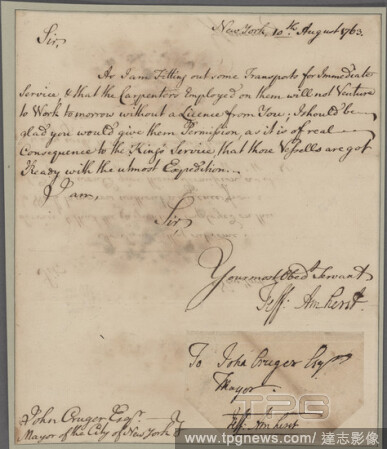 New York 10th. August 1763.
Sir,
As I am Fitting out some Transports for Immediate
Service & that the Carpenters Employed on them will not Venture
to Work to morrow without a Licence from You; I should be
glad you would give them Permission, as it is of real
Consequence to the Kings Service, that those Vessells are got
Ready with the utmost Expedition.
I am,
Sir,
Your most Obedt. Servant
Jeff: Amherst.
To John Cruger Esqr.
Mayor
Jeff: Amherst
John Cruger Esqr.
Mayor of the City of New York
TPG
www.tpgnews.com | 達志影像